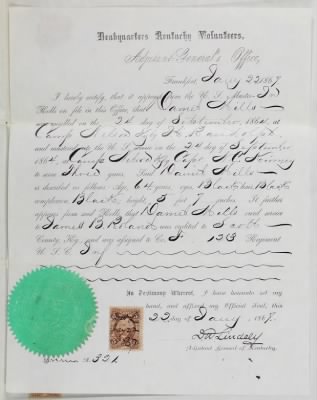 Headquarters Kentucky Volunteers,
Adjutant General's Office,
Frankfort, Jany 22 1867
I hereby certify, that it appears from the U. S. Muster-
Rolls on file in this Office, that James Mills
was enrolled on the 24 day of September, 1864, at
Camp Nelson Ky
and mustered into the U. S. service on the 24 day of September
1864, at Camp Nelson Ky Capt
to serve Three years. Said James Mills
is described as follows: Age, 64 years, eyes Black hair Black
complexion Black height 5 feet 7 inches. It further
appears from said Rolls that James Mills owed service
to James B was credited to Scott
County, Ky., and was assigned to Co. 123 Regiment
U. S. C. Inf
In Testimony Whereof, I have hereunto set my
hand, and affixed my Official Seal, this
22 day of Jany 1867.
D W Lindsey
Adjutant General of Kentucky.
321